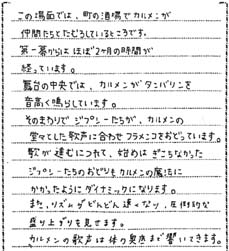 この場面では、町の酒場でカルメンが
仲間たちとたむろしているところです。
第一幕からはほぼ2ヶ月の時間が
経っています。
舞台の中央では、カルメンがタンバリンを
音高く鳴らしています。
そのまわりでジプシーたちが、カルメンの
堂々とした歌声に合わせフラメンコをおどっています。
歌が進むにつれて、始めはぎこちなかった
ジプシーたちのおどりもカルメンの魔法に
かかったようにダイナミックになります。
また、リズムがどんどん速くなり、圧倒的な
盛り上がりを見せます。
カルメンの歌声は体の奥底まで響いてきます。